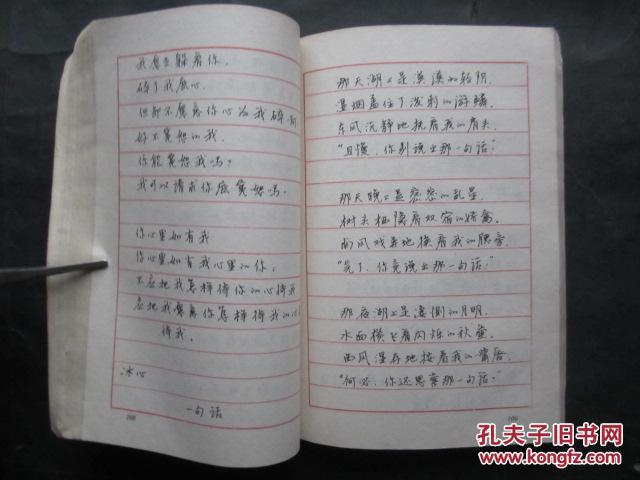 我应去躲着你,
碎了我底心。
但却不愿底你心为我碎啊
好不宽恕的我,
你能宽恕我吗?
我可以请求你底宽恕吗。
你心里如有我
你心里如有我心里的你;
不应把我怎样待你的心待我
应把我愿你怎样待我的心
待我。
冰心
一句话
108
那天湖上是漠漠的轻阴,
湿烟盖住了泼剌的游鳞
东风沉静地抚着我的肩头,
“且慢,你别说出那一句话!”
那天晚上是密密的乱星,
树头栖隐着双宿的娇禽,
南风戏弄地挨着我的腮旁,
“完了,你竟说出那一句话!”
那夜湖上是凄恻的月明,
水面横飞着闪烁的秋萤,
西风温存地按着我的嘴唇,
“何必,你还思索那一句话?”
109
孔夫子旧书网
www.kongfz.com